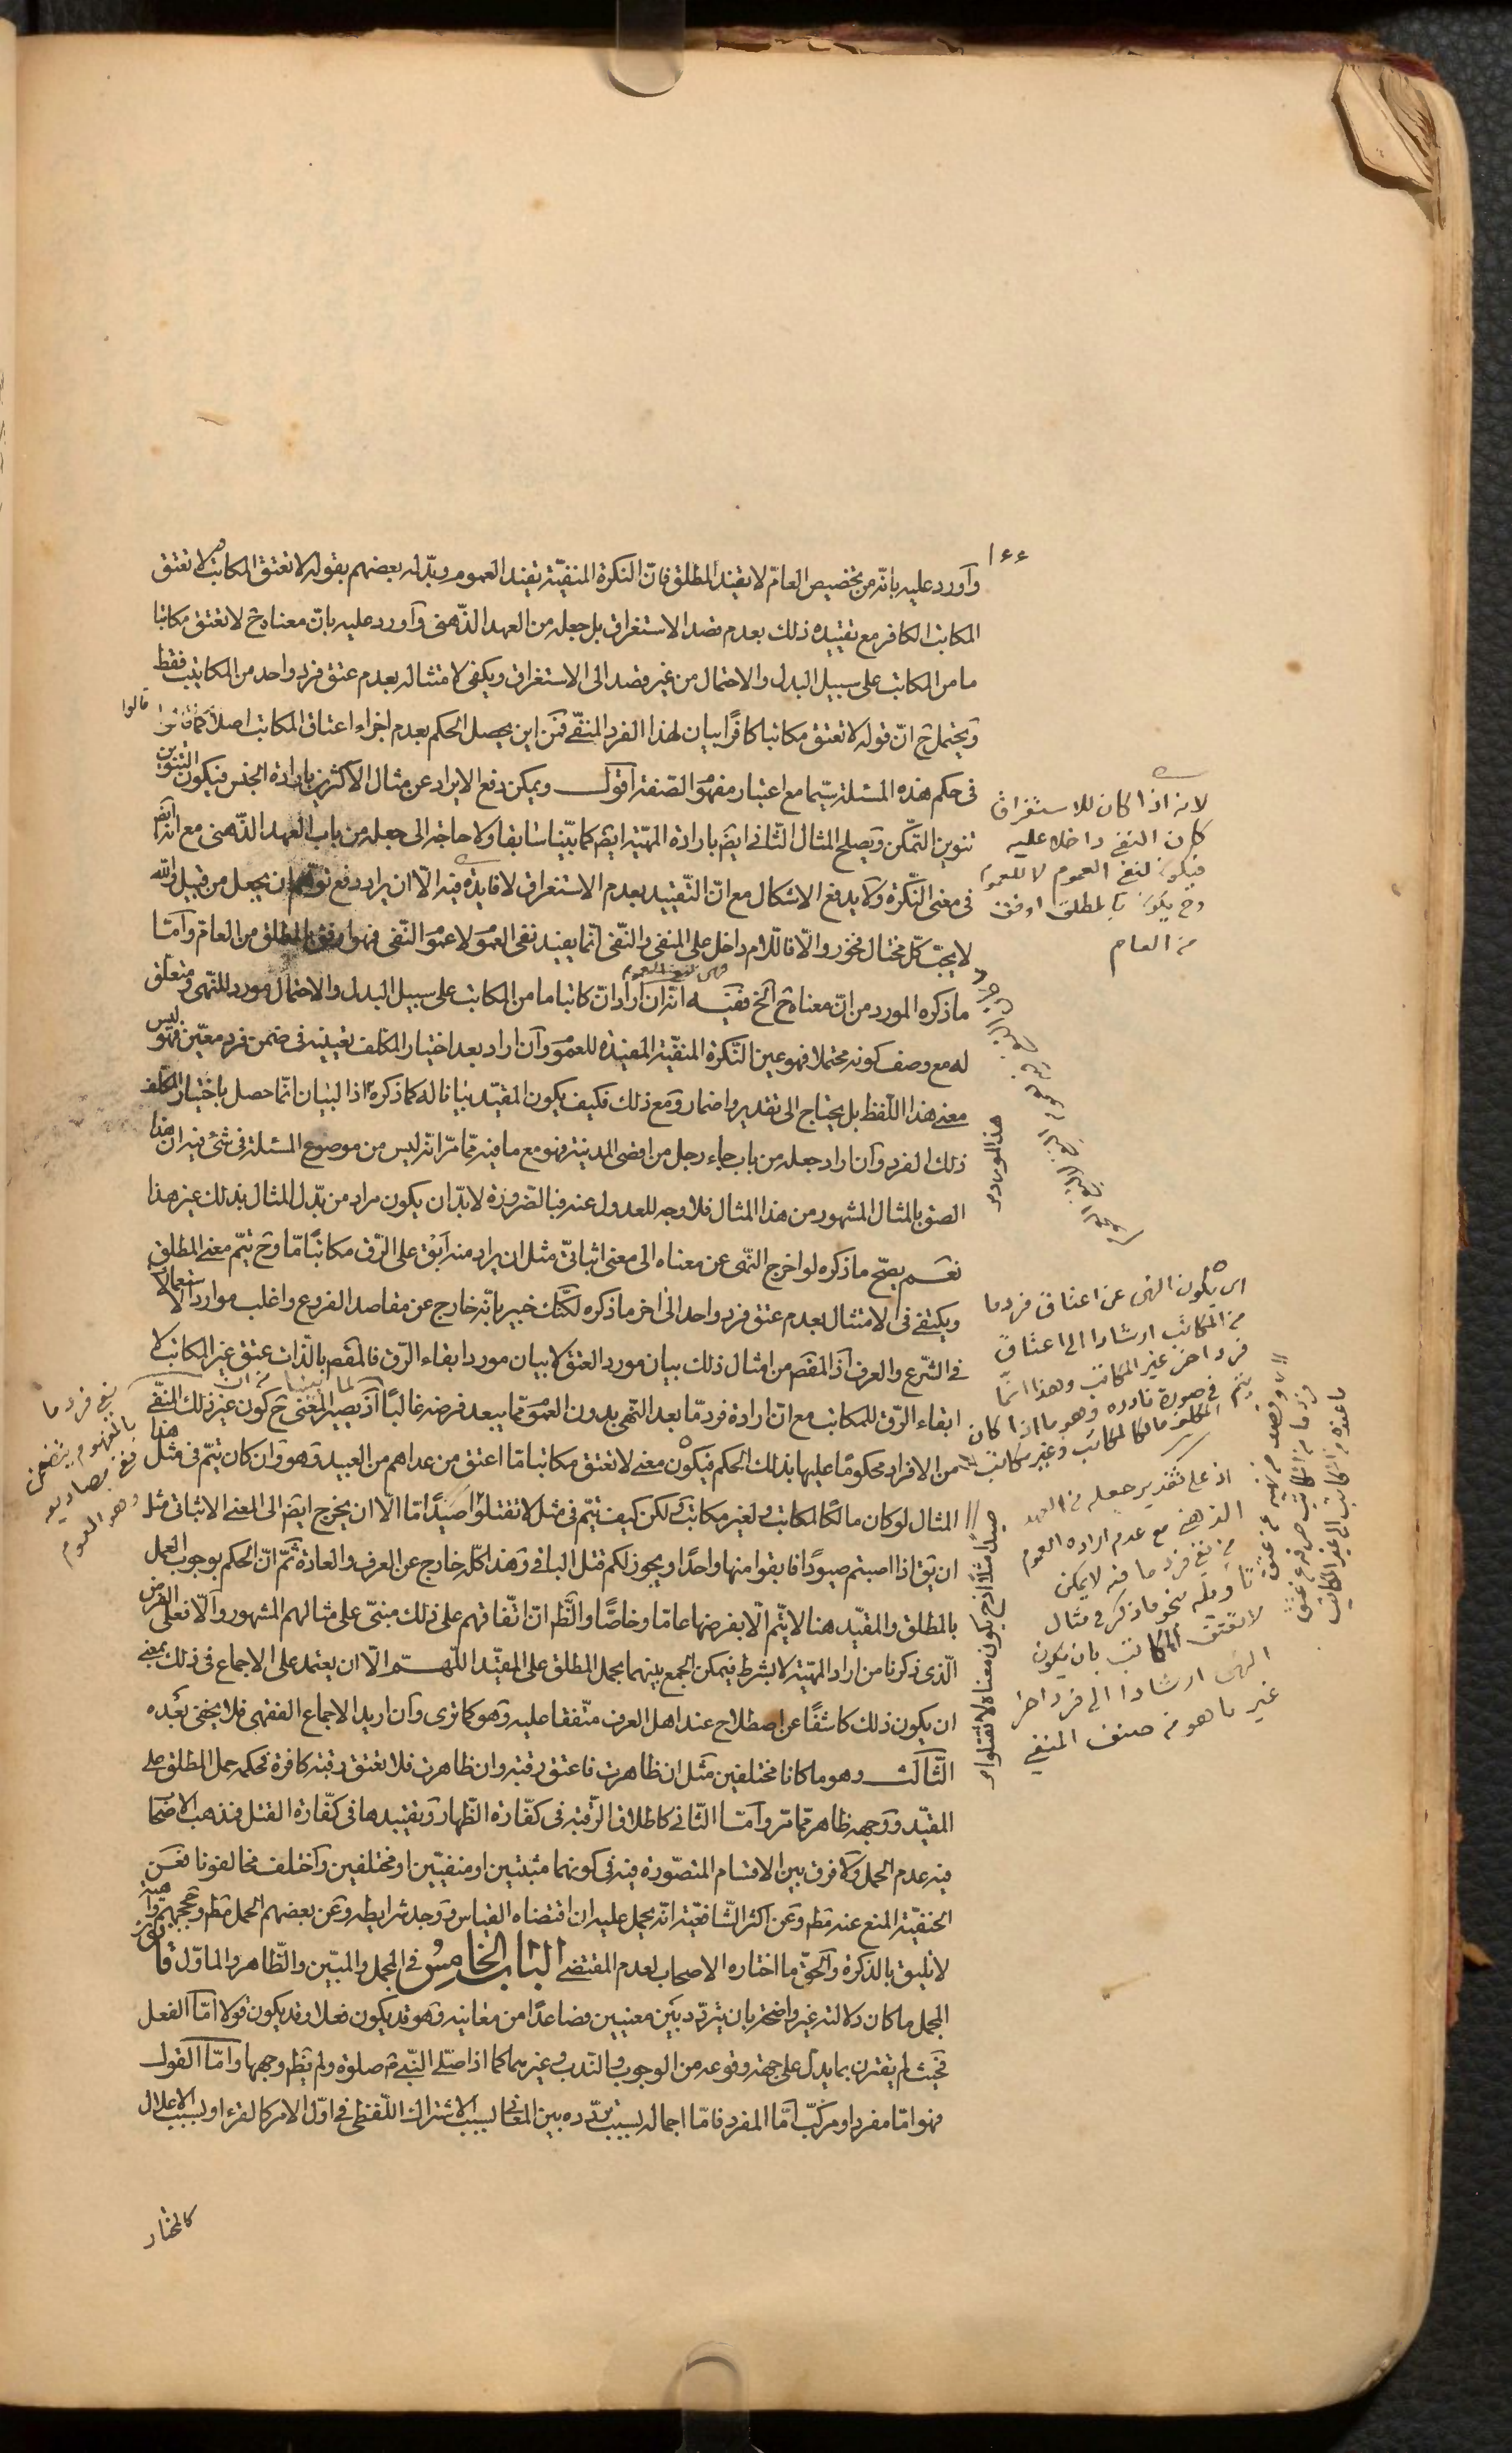 ١٤٤
وأورد عليه بانّه من تخصيص العامّ لا يقيّد المطلق فانّ النكرة المنفيّة تفيد العموم وبدّله بعضهم بقوله لا تعتق المكاتب لا تعتق
المكاتب الكافر مع تقييده ذلك بعدم قصد الاستغراق بل جعله من العهد الذّهنى وأورد عليه بانّ معناه ح لا تعتق مكاتبا
ما من المكاتب على سبيل البدل والاحتمال من غير قصد الى الاستغراق ويكفى لامتثاله بعدم عتق فرد واحد من المكاتب فقط
ويحتمل ح انّ قوله لا تعتق مكاتبا كافرًا بيان لهذا الفرد المنفّى فمن اين يحصل الحكم بعدم اجزاء اعتاق المكاتب اصلا كما قالوا
فى حكم هذه المسئلة سيّما مع اعتبار مفهوم الصّفة اقول ويمكن دفع الايراد عن مثال الاكثرين بارادة الجنس فيكون التنوين
تنوين التّمكّن ويصلح المثال الثّانى ايضَ بارادة المهيّة ايضَ كما بيّنا سابقا ولا حاجة الى جعله من باب العهد الذّهنى مع انّه ايضَ
فى معنى النّكرة ولا يدفع الاشكال مع انّ التّقييد بعدم الاستغراق لا فايدة فيه الّا ان يراد دفع توهّم ان يجعل من قبيل والله
لا يحبّ كلّ مختال فخور والّا فاللّام داخل على المنفى والنّفى انّما يفيد نفى العموم لا عموم النّفى فهو اوفق بالمطلق من العامّ وأمّا
ما ذكره المورد من انّ معناه ح الخ ففيه انّه ان أراد انّ كاتبا ما من المكاتب على سبيل البدل والاحتمال مورد للنّهى ومتعلّق
له مع وصف كونه محتملا فهو عين النّكرة المنفيّة المفيدة للعموم وان اراد بعد اختيار المكلّف تعيينه فى ضمن فرد معيّن فهو ليس
معنى هذا اللّفظ بل يحتاج الى تقدير واضمار ومع ذلك فكيف يكون المقيّد بيانا له كما ذكره اذ البيان انّما حصل باختيار المكلّف
ذلك الفرد وان اراد جعله من باب جاء رجل من اقصى المدينة فهو مع ما فيه ممّا مرّ انّه ليس من موضوع المسئلة فى شئ فيه انّ هذا
الصق بالمثال المشهور من هذا المثال فلا وجه للعدول عنه فبالضّرورة لا بدّ ان يكون مراد من بدّل المثال بذلك غير هذا
نعم يصحّ ما ذكره لو اخرج النّهى عن معناه الى معنى اثباتىّ مثل ان يراد منه ابق على الرّق مكاتبًا مّا وح يتمّ معنى المطلق
ويكتفى فى الامتثال بعدم عتق فرد واحد الى اخر ما ذكره لكنّك خبير بانّه خارج عن مقاصد الفروع واغلب موارد الاستعمالات
فى الشّرع والعرف اذ المقصَ من امثال ذلك بيان مورد العتق لا بيان مورد ابقاء الرّق فالمقصَ بالذّات عتق غير المكاتب لا
ابقاء الرّق للمكاتب مع انّ ارادة فرد مّا بعد النّهى بدون العموم ممّا يبعد فرضه غالبًا اذ يصير المعنى ح كون غير ذلك المنفّى
من الافراد محكومًا عليها بذلك الحكم فيكون معنى لا تعتق مكاتبا مّا اعتق من عداهم من العبيد وهو وان كان يتمّ فى مثل هذا
المثال لو كان مالكًا لمكاتب ولغير مكاتب ولكن كيف يتمّ فى مثل لا تقتلوا صيدًا مّا الّا ان يخرج ايضَ الى المعنى الاثباتى مثل
ان يقَ اذا اصبتم صيودًا فابقوا منها واحدًا ويجوز لكم قتل الباقى وهذا كلّه خارج عن العرف والعادة ثمّ انّ الحكم بوجوب العمل
بالمطلق والمقيّد هنا لا يتمّ الّا بفرضها عامّا وخاصًّا والظّ انّ اتّفاقهم على ذلك مبنىّ على مثالهم المشهور والّا فعلى الفرض
الّذى ذكرنا من اراد المهيّة لا بشرط فيمكن الجمع بينهما بحمل المطلق على المقيّد اللّهمّ الّا ان يعتمد على الاجماع فى ذلك بمعنى
ان يكون ذلك كاشفًا عن اصطلاح عند اهل العرف متّفقا عليه وهو كما ترى وان اريد الاجماع الفقهى فلا يخفى بُعده
الثّالث وهو ما كانا مختلفين مثل ان ظاهرت فاعتق رقبة وان ظاهرت فلا تعتق رقبة كافرة فحكمه حمل المطلق على
المقيّد ووجهه ظاهر ممّا مرّ وأمّا الثّانى كاطلاق الرّقبة فى كفّارة الظّهار وتقييدها فى كفّارة القتل فمذهب الاصحاب
فيه عدم الحمل ولا فرق بين الاقسام المتصّورة فيه فى كونهما مثبتين او منفيّين او مختلفين واختلف مخالفونا فعن
الحنفيّة المنع عنه مطَ وعن اكثر الشّافعيّة انّه يحمل عليه ان اقتضاه القياس ووجد شرايطه وعن بعضهم الحمل مطَ وحججهم واهية
لا تليق بالذّكرة والحقّ ما اختاره الاصحاب لعدم المقتضى الباب الخامس فى المجمل والمبيّن والظّاهر والماوّل قانون
المجمل ما كان دلالته غير واضحة بان يتردّد بين معنيين فصاعدًا من معانيه وهو قد يكون فعلا وقد يكون قولا امّا الفعل
فحيث لم يقترن بما يدلّ على جهة وقوعه من الوجوب والنّدب وغيرهما كما اذا صلّى النّبىّ ص صلوة ولم يظهر وجهها وامّا القول
فهو امّا مفرد او مركّب امّا المفرد فامّا اجماله بسبب تردّده بين المعانى بسبب الاشتراك اللّفظى فى اوّل الامر كالقرء او بسبب الاعلال
كالمختار
قالوا
لانه اذا كان للاستغراق
كان النفى داخلا عليه
فيكون لنفى العموم لا للعموم
وح يكون بالمطلق اوفق
من العام
هذا المورد
اى يكون النهى عن اعتاق فرد ما
من المكاتب ارشادا الى اعتاق
فرد اخر غير المكاتب وهذا انّما
يتم فى صورة نادرة وهو ما اذا كان
المكلف مالكا لمكاتب وغير مكاتب
اذ على تقدير جعله من العهد
الذهنى مع عدم ارادة العموم
من نفى فرد ما فيه لا يمكن
تاويله بنحو ما ذكر فى مثال
لا تعتق المكاتب بان يكون
النهى ارشادا الى فرد اخر
غير ما هو من صنف المنفى
صيدا مثلا اذ ح يكون معناه لا تقتلوا
نفى فرد ما
بالمفهوم يتضمن
نفى مصاديقه
وهو العموم